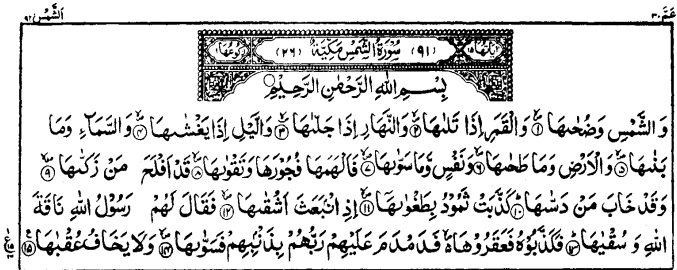 عَمَّ ٣٠ الشَّمْس ٩١
اٰيَاتُهَا ١٥ (٩١) سُوْرَةُ الشَّمْسِ مَكِّيَّةٌ (٢٦) رُكُوْعُهَا ١
بِسْمِ اللّٰهِ الرَّحْمٰنِ الرَّحِيْمِ
وَالشَّمْسِ وَضُحٰىهَا ۙ﴿١﴾ وَالْقَمَرِ اِذَا تَلٰىهَا ۙ﴿٢﴾ وَالنَّهَارِ اِذَا جَلّٰىهَا ۙ﴿٣﴾ وَالَّيْلِ اِذَا يَغْشٰىهَا ۙ﴿٤﴾ وَالسَّمَآءِ وَمَا
بَنٰىهَا ۙ﴿٥﴾ وَالْاَرْضِ وَمَا طَحٰىهَا ۙ﴿٦﴾ وَنَفْسٍ وَّمَا سَوّٰىهَا ۙ﴿٧﴾ فَاَلْهَمَهَا فُجُوْرَهَا وَتَقْوٰىهَا ۙ﴿٨﴾ قَدْ اَفْلَحَ مَنْ زَكّٰىهَا ۙ﴿٩﴾
وَقَدْ خَابَ مَنْ دَسّٰىهَا ۙ﴿١٠﴾ كَذَّبَتْ ثَمُوْدُ بِطَغْوٰىهَا ۙ﴿١١﴾ اِذِ انْۢبَعَثَ اَشْقٰىهَا ۙ﴿١٢﴾ فَقَالَ لَهُمْ رَسُوْلُ اللّٰهِ نَاقَةَ
اللّٰهِ وَسُقْيٰهَا ۙ﴿١٣﴾ فَكَذَّبُوْهُ فَعَقَرُوْهَا ۙ فَدَمْدَمَ عَلَيْهِمْ رَبُّهُمْ بِذَنْۢبِهِمْ فَسَوّٰىهَا ۙ﴿١٤﴾ وَلَا يَخَافُ عُقْبٰهَا ﴿١٥﴾